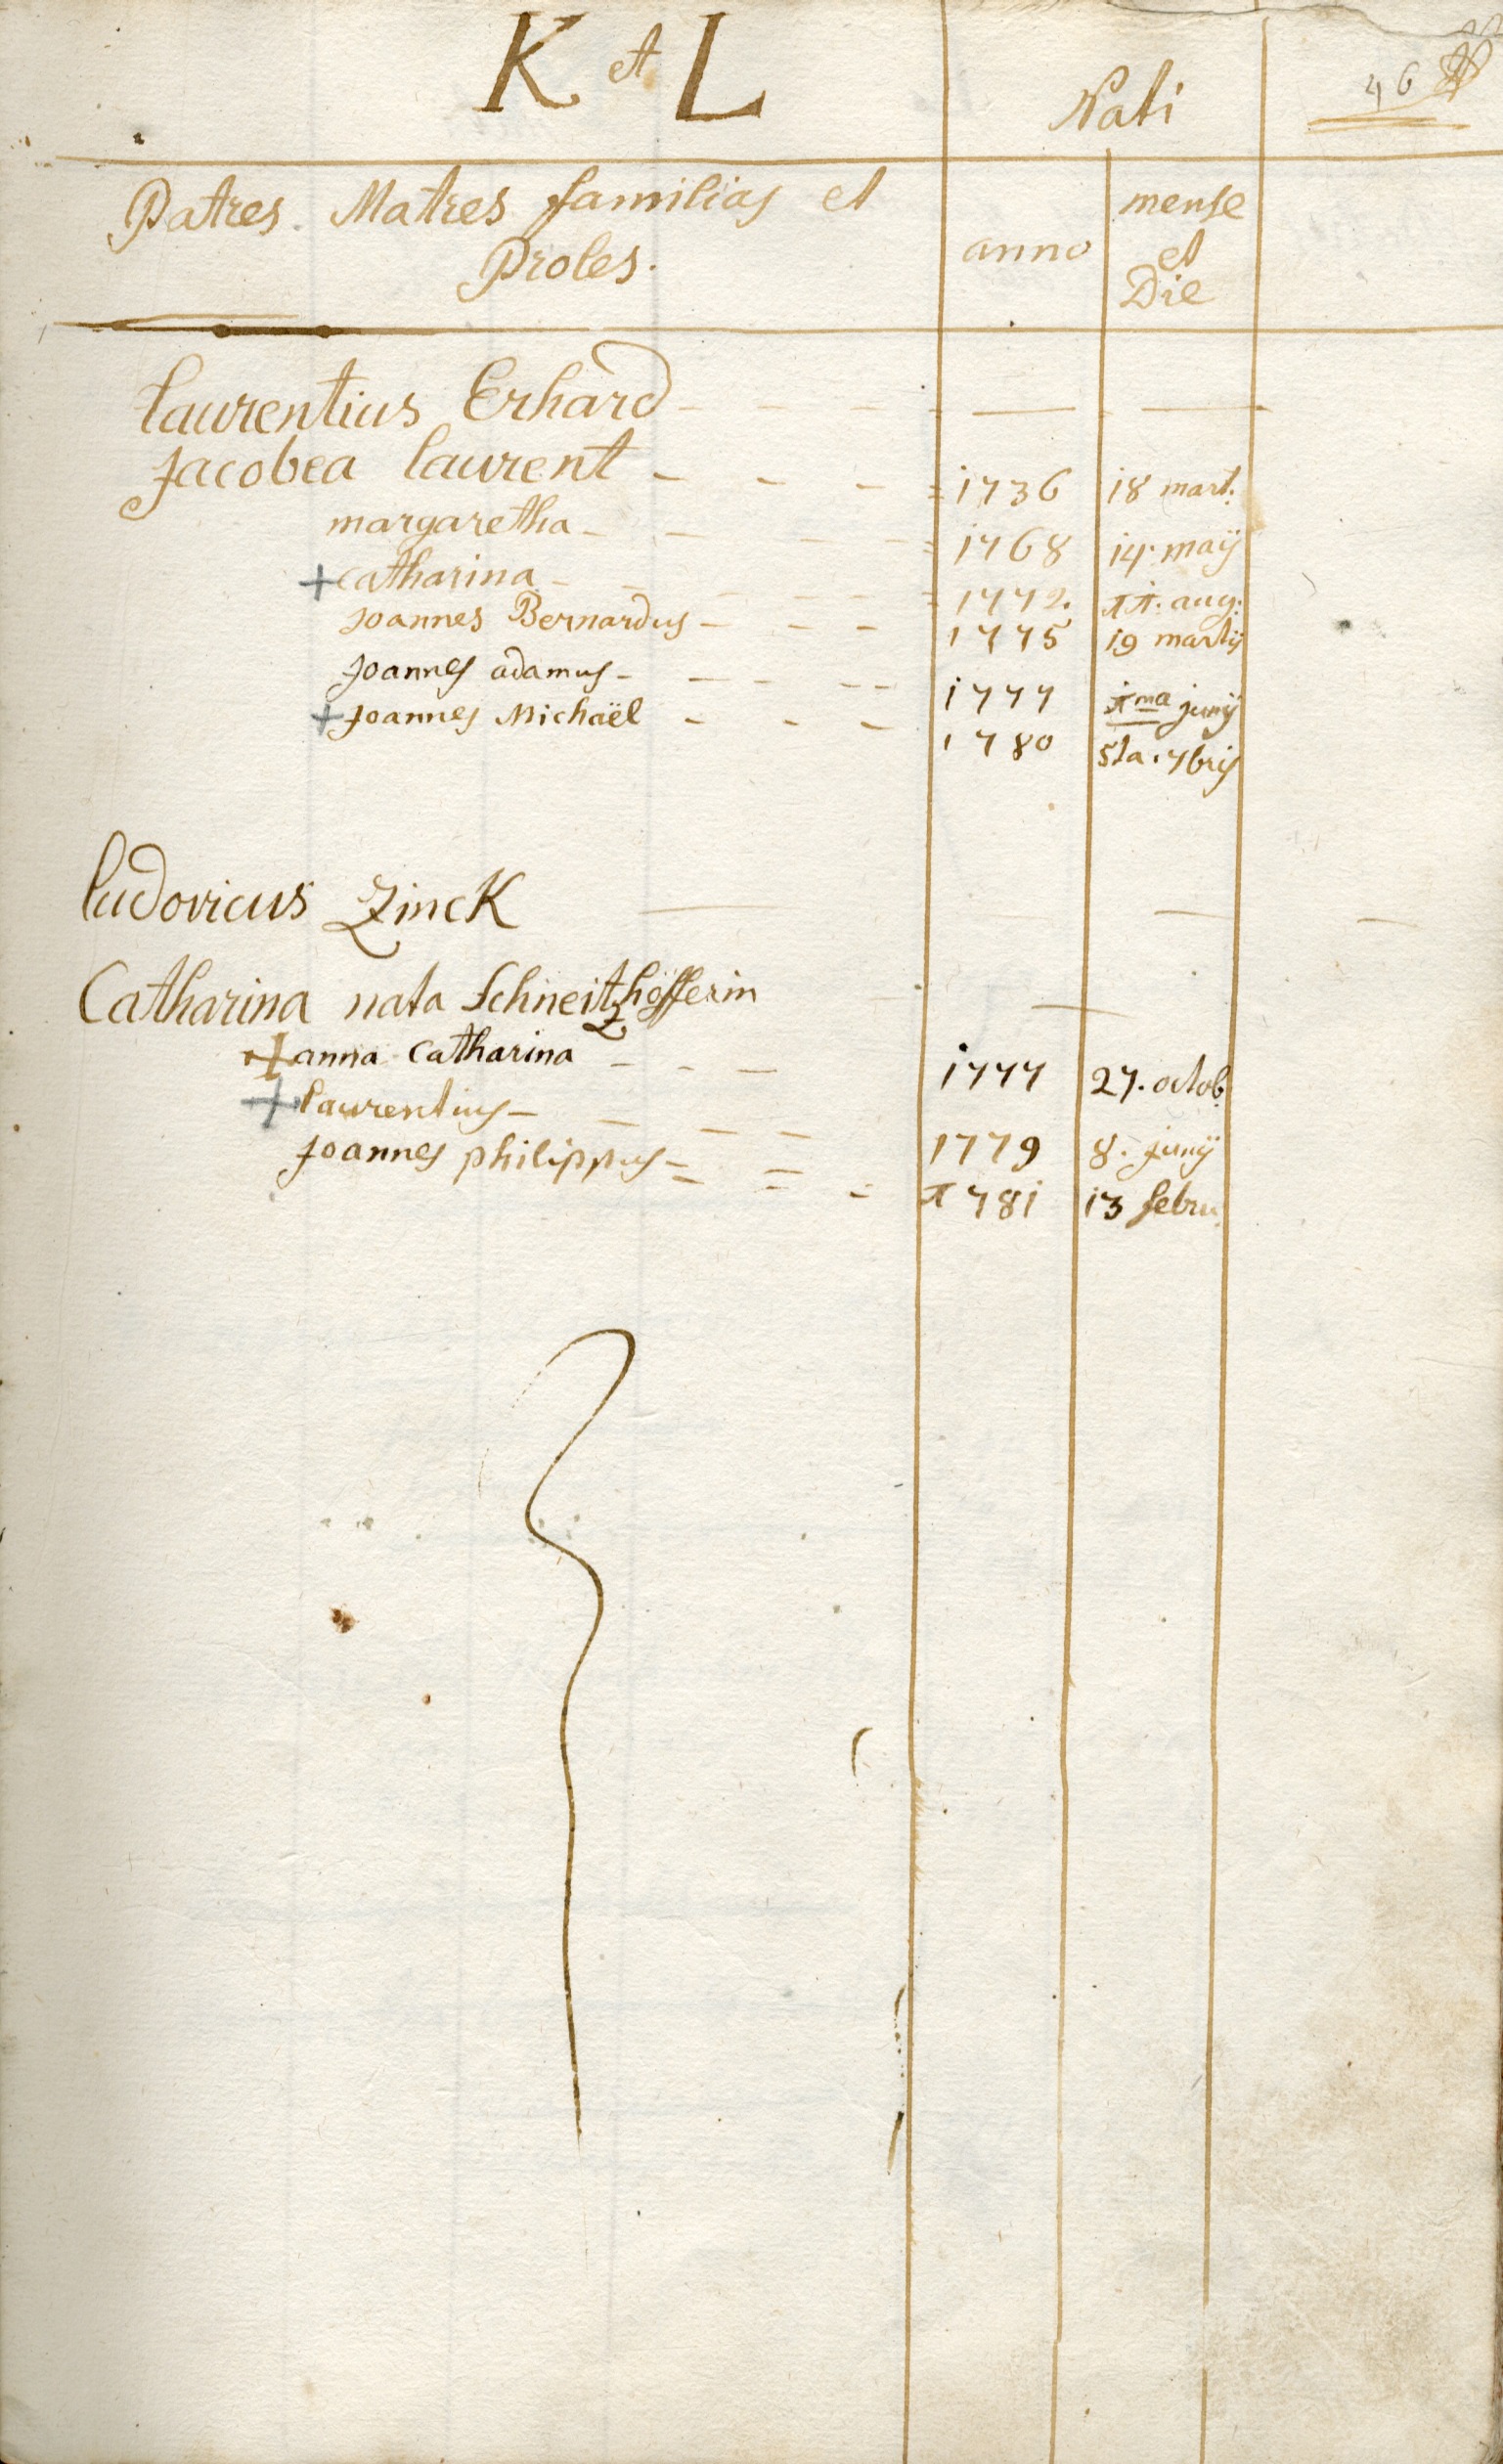 K et L
Nati
46
Patres. Matres familias et
Proles.
anno
mense
et
Die
Laurentius Erhard - - - - — —
Jacobea Laurent - - - = 1736 18 mart:
margaretha - - - - = 1768 14. maÿ
+ Catharina - - - - - = 1772. 11. aug:
Joannes Bernardus - - - 1775 19 martÿ
Joannes adamus - - - - - 1777 1ma junÿ
+ Joannes Michaël - - - 1780 5ta. 7bris
Ludovicus Zinck — — —
Catharina nata Schneitzhöfferin —
+ anna Catharina - - - 1777 27. octob.
+ Laurentius - - - - 1779 8. junÿ
Joannes philippus = = = 1781 13 febru.